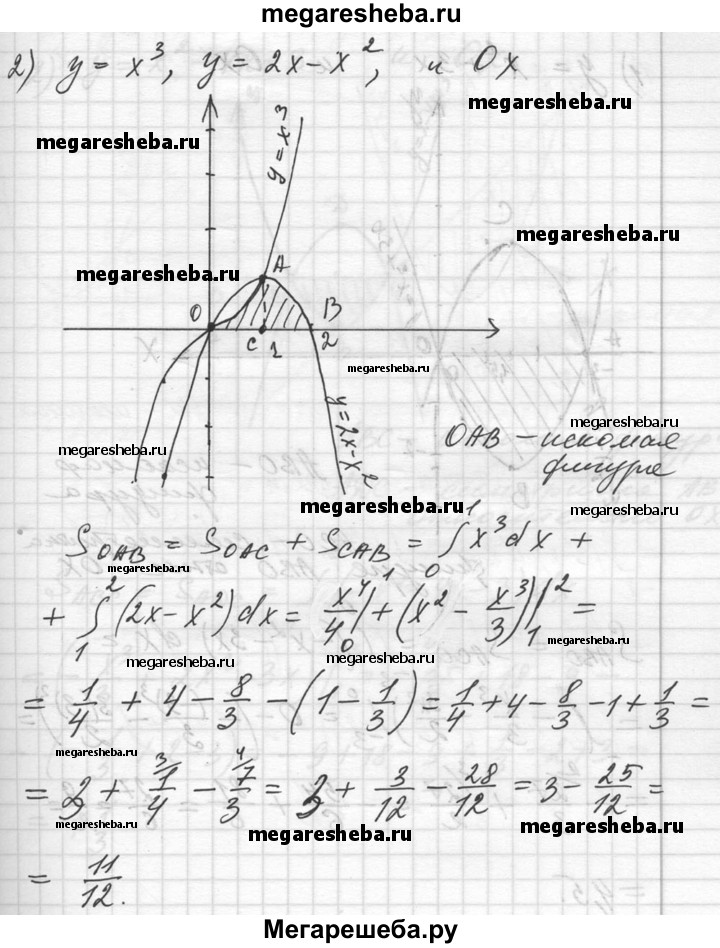 megaresheba.ru
2) y = x³, y = 2x - x², и Ox
megaresheba.ru
megaresheba.ru
y = x3
megaresheba.ru
megaresheba.ru
A
O
B
C 1 2
megaresheba.ru
y = 2x - x2
megaresheba.ru
megaresheba.ru
OAB - искомая
фигура
megaresheba.ru
megaresheba.ru
S_OAB = S_OAC + S_CAB = ∫₀¹ x³dx +
megaresheba.ru
+ ∫₁² (2x - x²)dx = x⁴/4 |₀¹ + (x² - x³/3)|₁² =
megaresheba.ru
megaresheba.ru
megaresheba.ru
= 1/4 + 4 - 8/3 - (1 - 1/3) = 1/4 + 4 - 8/3 - 1 + 1/3 =
megaresheba.ru
megaresheba.ru
= 3 + 1/4 - 7/3 = 3 + 3/12 - 28/12 = 3 - 25/12 =
megaresheba.ru
megaresheba.ru
megaresheba.ru
= 11/12.
Мегарешеба.ру